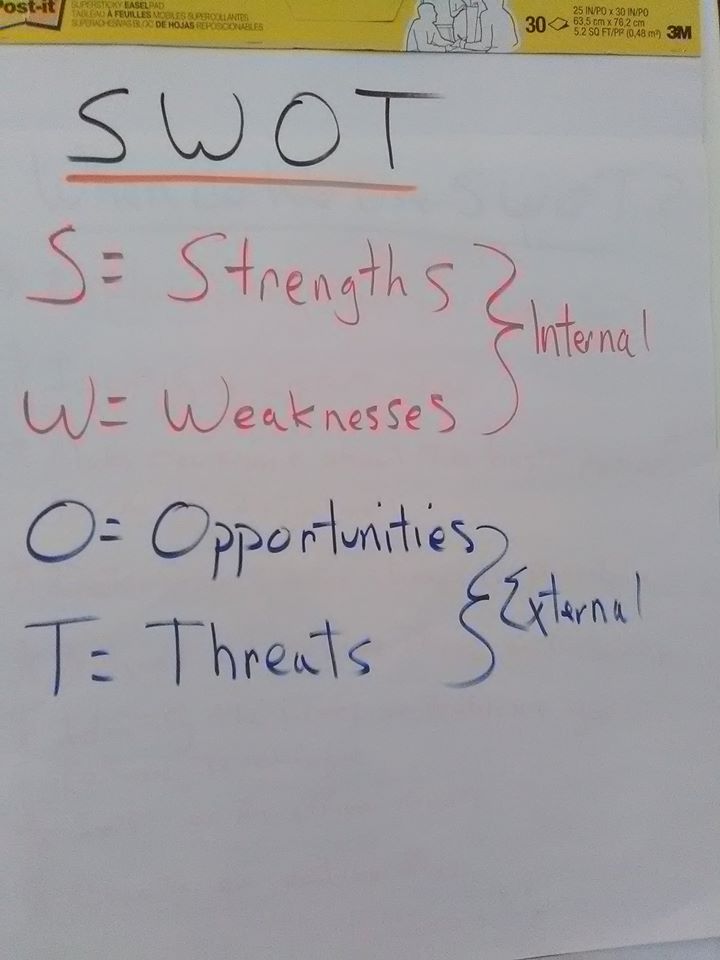 Post-it
SUPERSTICKY EASELPAD
TABLEAU À FEUILLES MOBILES SUPERCOLLANTES
SUPERADHESIVAS BLOC DE HOJAS REPOSICIONABLES
30
25 IN/PO x 30 IN/PO
63,5 cm x 76,2 cm
5.2 SQ FT/PI² (0,48 m²)
3M
SWOT
S= Strengths
Internal
W= Weaknesses
O= Opportunities
External
T= Threats